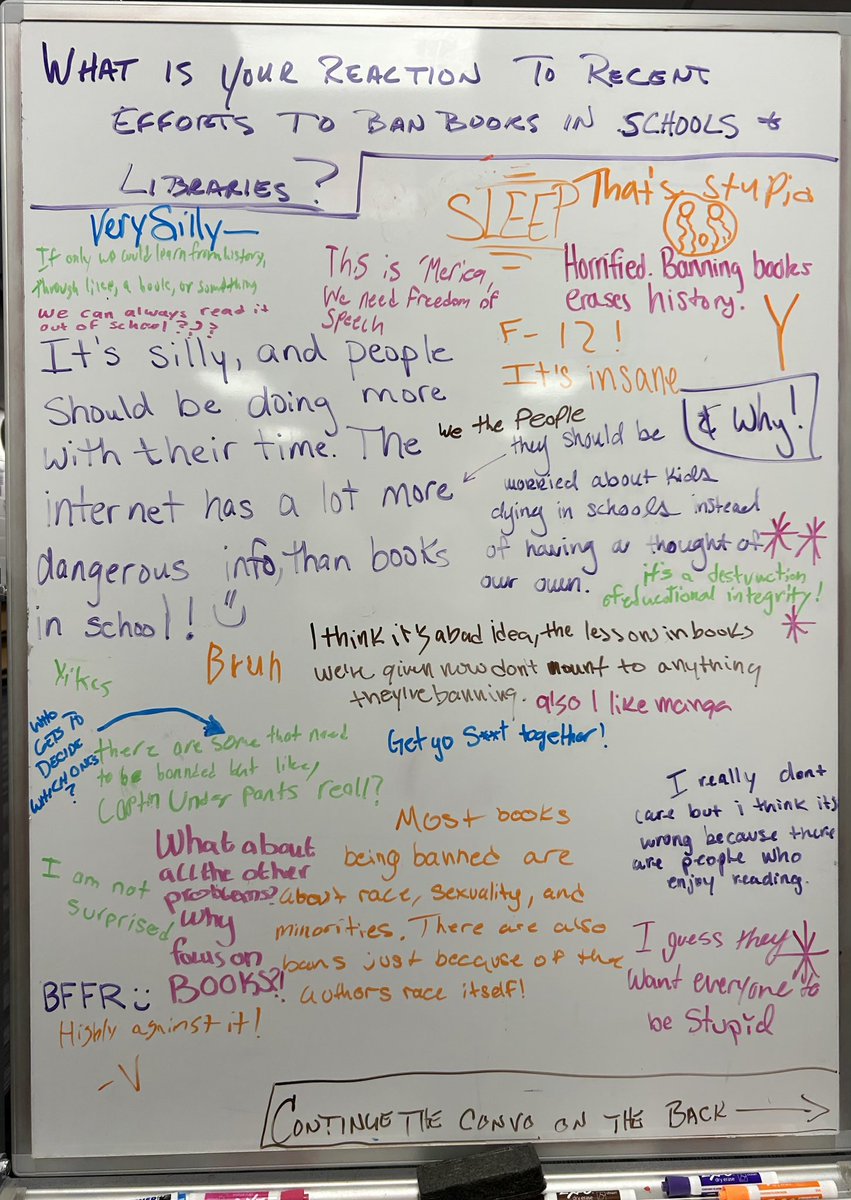 WHAT IS YOUR REACTION TO RECENT
EFFORTS TO BAN BOOKS IN SCHOOLS &
LIBRARIES?
Very Silly—
SLEEP
That's stupid
If only we could learn from history,
through like, a book, or something
We can always read it
out of school???
This is 'Merica,
We need freedom of
speech
Horrified. Banning books
erases history.
Y
F- 12!
It's insane
& Why!
It's silly, and people
should be doing more
with their time. The
internet has a lot more
dangerous info, than books
in school!
we the people
they should be
worried about kids
dying in schools instead
of having a thought of
our own.
it's a destruction
of educational integrity!
I think it's a bad idea, the lessons in books
we're given now don't mount to anything
they're banning.
also I like manga
Bruh
Yikes
WHO
GETS TO
DECIDE
WHICH ONES
?
there are some that need
to be bannded but like,
Captin Underpants reall?
Get yo S**t together!
I really dont
care but i think its
wrong because there
are people who
enjoy reading.
Most books
being banned are
about race, sexuality, and
minorities. There are also
bans just because of the
authors race itself!
What about
all the other
problems?
Why
focus on
BOOKS?!
I am not
surprised
I guess they
want everyone to
be stupid
BFFR
Highly against it!
-V
CONTINUE THE CONVO ON THE BACK